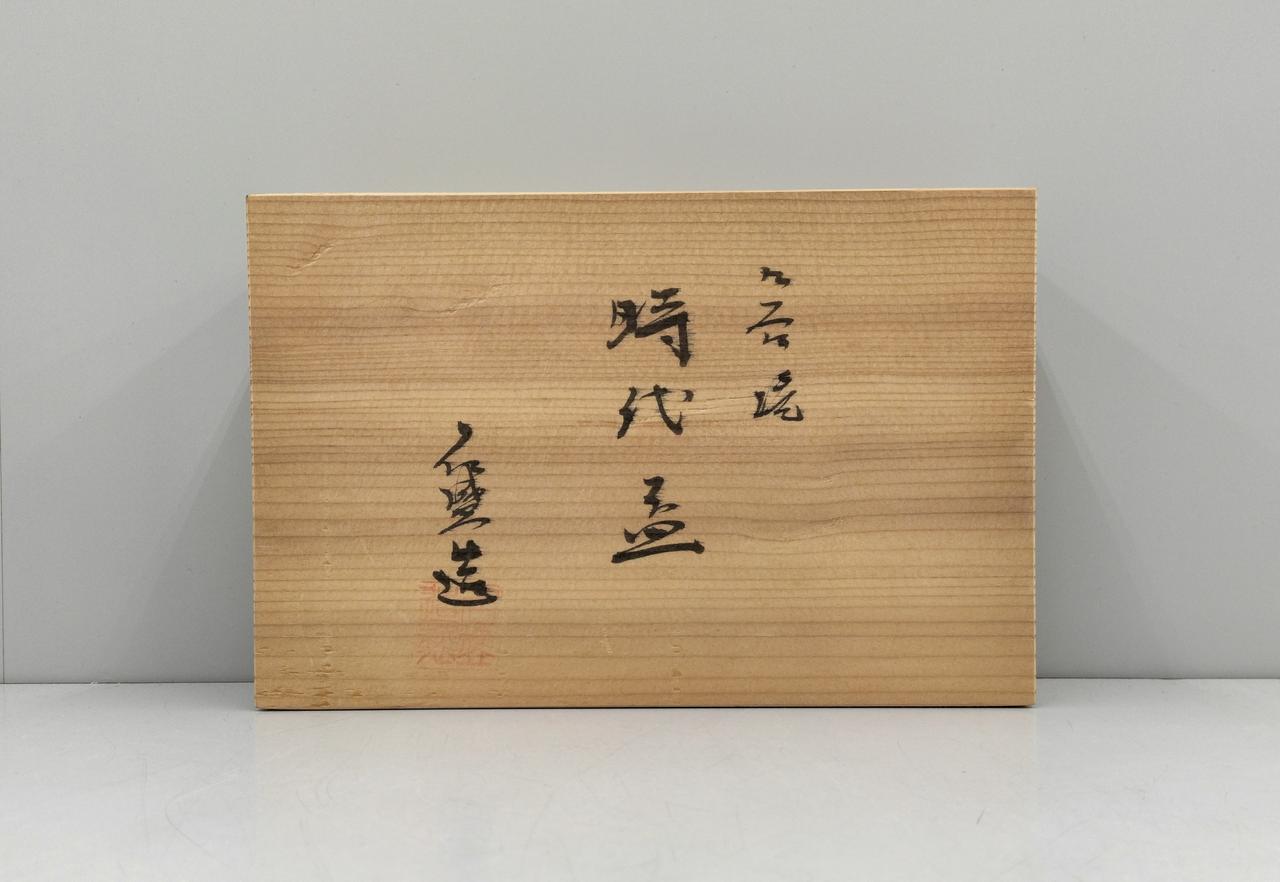 九谷焼
時代盃
造